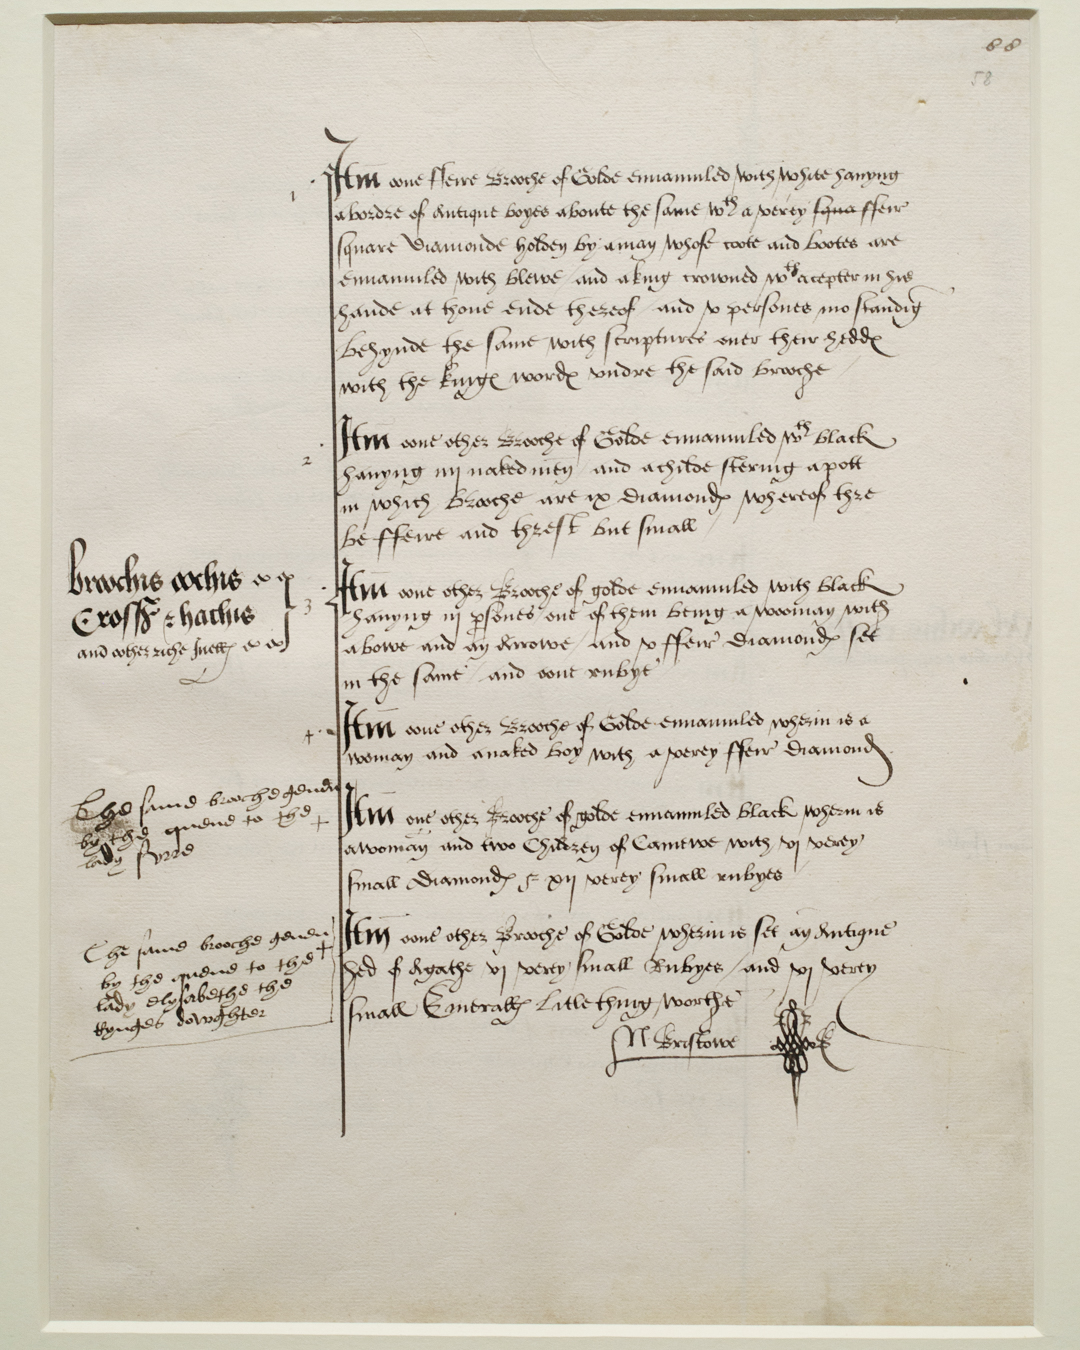 88
58
1
Itm̄ oone ffeire Brooche of Golde ennamuled with white hauyng
a bordre of Antique boyes aboute the same wth a verey squa ffeir
square Diamonde holden by a man whose coote and bootes are
ennamuled with blewe and a king crowned wth a cepter in his
hande at thone ende thereof and v persones mo standīg
behynde the same with scriptures ouer their heddꝭ
with the kingꝭ wordꝭ vndre the said brooche
2
Itm̄ oone other Brooche of Golde ennamuled wth black
hauyng iiij naked men and a childe stering a pott
in which Brooche are ix Diamondꝭ whereof thre
be ffeire and threst but small
brooches oochis
Crosses & hachis
and other riche
3
Itm̄ oone other Brooche of golde ennamuled with black
hauyng iij psones one of them being a wooman with
a bowe and an Arrowe and v ffeir Diamondꝭ set
in the same and oone rubye
4
Itm̄ oone other Brooche of Golde ennamuled wherin is a
woman and a naked boy with a verey ffeir Diamond
The same brooche geuen
by the quene to the
lady
Itm̄ one other Brooche of golde ennamuled black wherin is
a woman and two Children of Camewe with vj verey
small Diamondꝭ & xij verey small rubyes
The same brooche geuen
by the quene to the
lady elysabethe the
kynges dowghter
Itm̄ oone other Brooche of Golde wherin is set an Antique
hed of Agathe vj verey small Rubyes and vj verey
small Emerallꝭ litle thing worthe
N Bristowe clerk